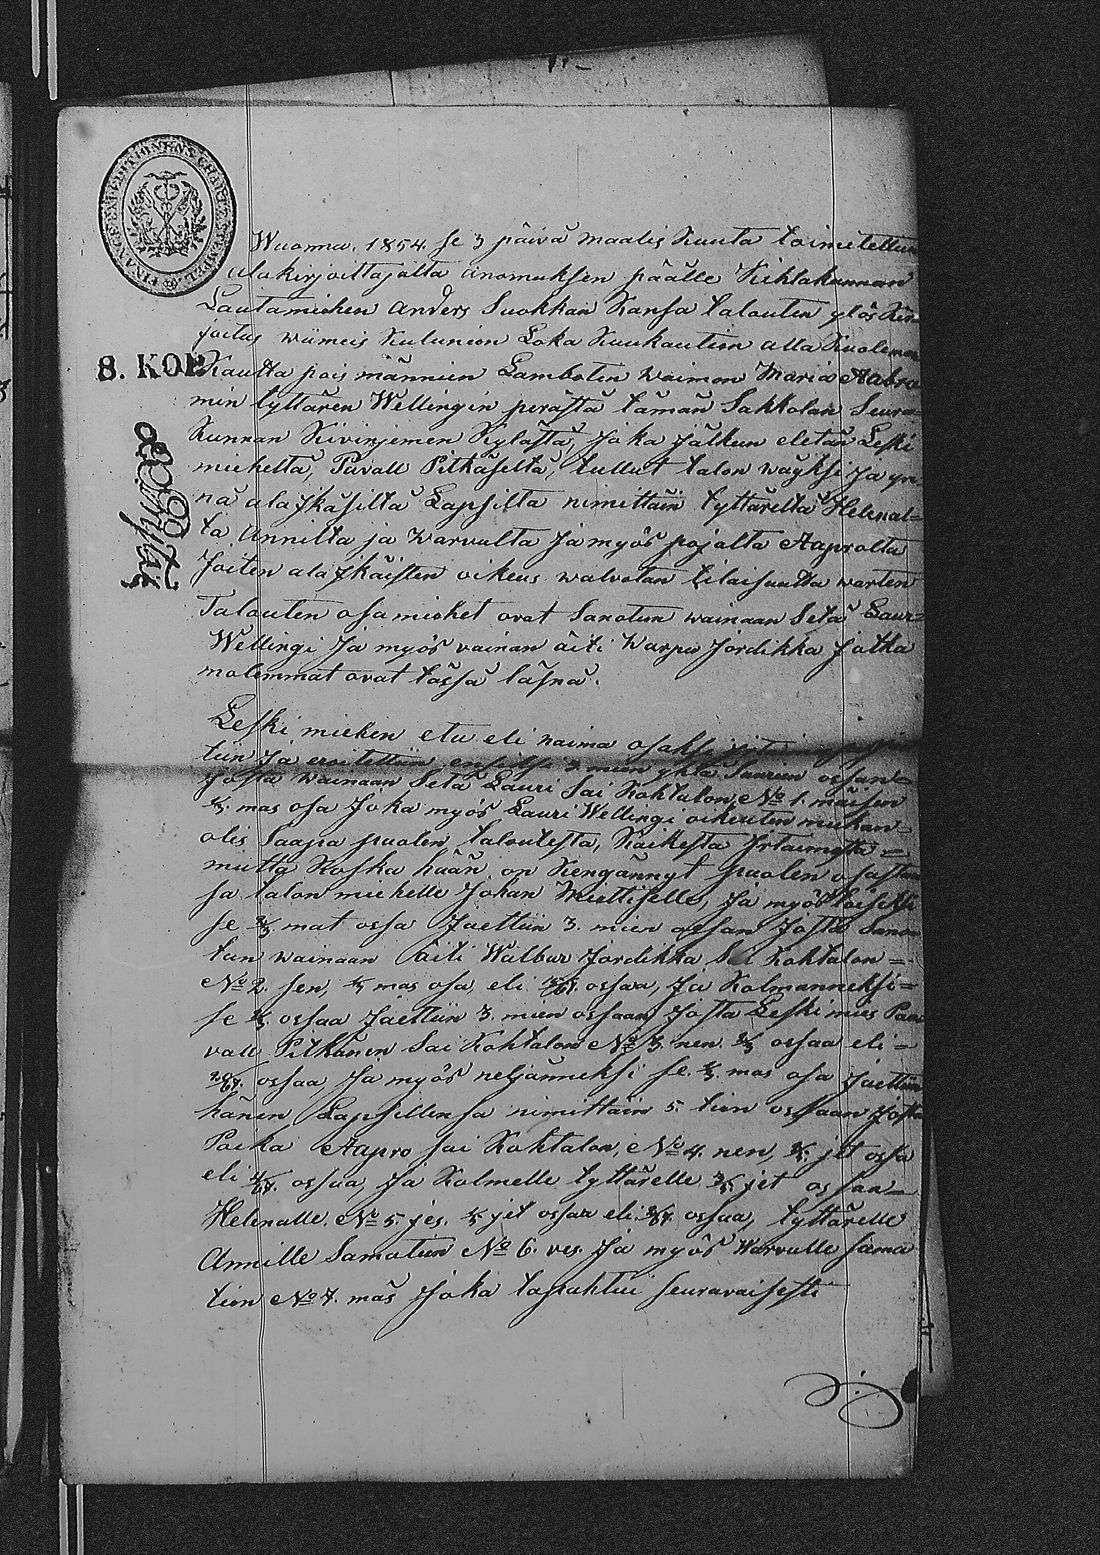 FINANCE EXPEDITIONENS CHARTÆ STEMPEL
8. KOP.
Wuonna 1854 se 3 päivä Maalis Kuuta toimitettiin
alakirjoittajalta anomuksen päälle Kihlakunnan
Lautamiehen Anders Suokkan Kansa talouten ylös Kir=
joitus wiimeis Kulunien Loka Kuukautien alla Kuoleman
Kautta pois männien Lamboten Waimon Maria Aabra
min tyttären Wellingin perästä tämän Sakkolan Seura=
Kunnan Kiviniemen Kylästä, Joka Jälkeen eletän Leski
mieheltä, Pavall Pitkäseltä, tullut talon wäyksi Ja yn
nä alaJkäsiltä Lapsilta nimittäin tyttäreltä Helenal=
ta Annilta ja Warvulta Ja myös pojalta Aaprolta
Joiten alaJkäisten oikeus walvotan tilaisuutta warten
Talouten osamiehet ovat Sanotun wainaan Setä Laur=
Wellingi Ja myös vainan äiti Warpu Jordikka Jotka
molemmat ovat tässä läsnä.
Leski miehen etu eli naima osaksi
tiin Ja eroitettiin ensiksi 3. mien yhtä Suureen ossan=
Josta wainaan Setä Lauri Sai Kohtalon, No 1. mäisen
mas osa Joka myös Lauri Wellingi oikeuten mukan=
olis Saapa puolen taloutesta, Kaikesta Jrtaimesta =
mutta Koska hään on Kengännyt puolen osastan
sa talon miehelle Johan Miettiselle, Ja myös toiseksi
se 2/3 mat ossa Jaettiin 3. mien ossan Josta Sano
tun wainaan äiti Walbur Jordikka Sai Kohtalon=
No 2. sen, mas osa, eli ossaa, Ja Kolmanneksi=
se ossaa Jaettiin 3. mien ossaan Josta Leski mies Paa
vall Pitkänen Sai Kohtalon No 3. nen ossaa eli=
ossaa, Ja myös neljänneksi se mas osa Jaettiin
hänen Lapsillensa nimittäin 5. tien ossaan Josta
Poika Aapro sai Kohtalon, No 4. nen, jet ossa
eli ossaa, Ja Kolmelle tyttärelle 3/5 jet ossaan=
Helenalle. No 5. jes. 1/5 jet ossaa eli ossaa, tyttärelle
Annille Samatun No 6. ves. Ja myös Warvulle Sama
tien No 7. mäs Joka tapahtui seuravaisesti